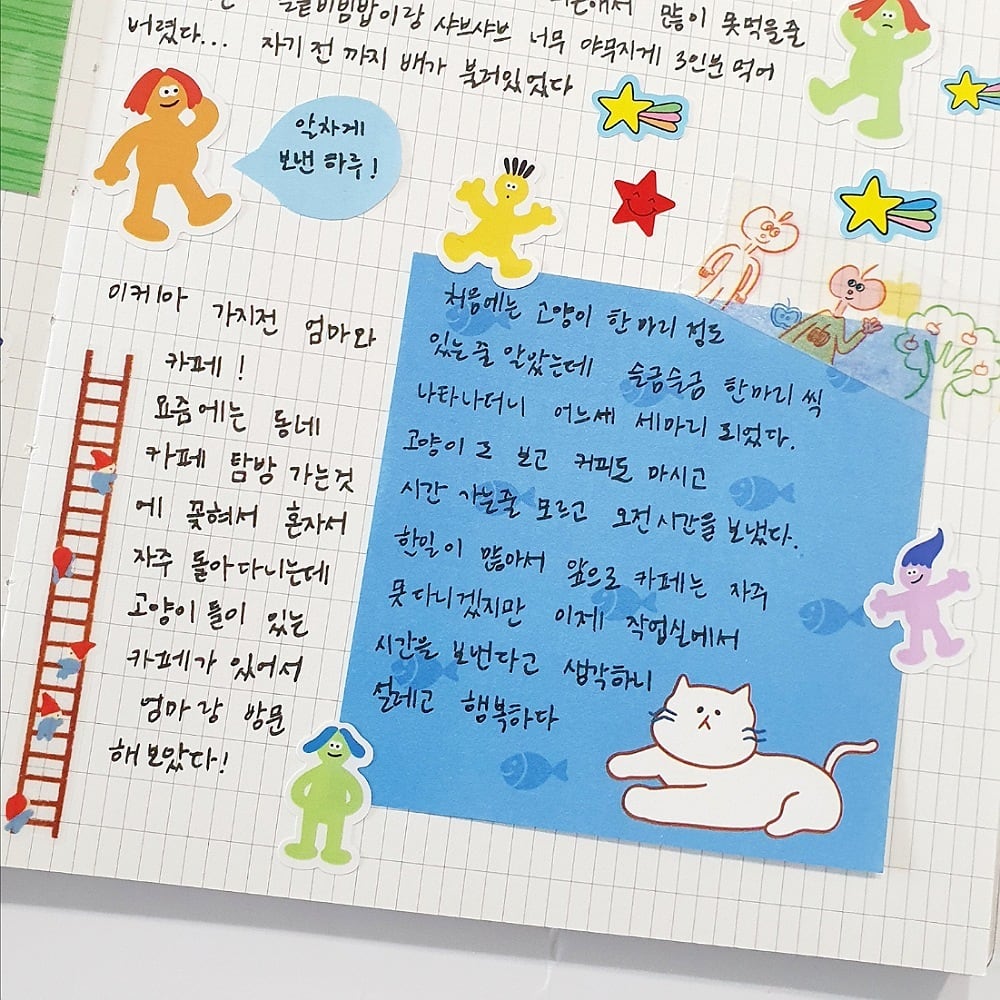 많이 못먹을줄
비빔밥이랑 샤브샤브 너무 야무지게 3인분 먹어
버렸다... 자기 전 까지 배가 불러있었다
알차게
보낸 하루!
이케아 가지전 엄마와
카페!
요즘에는 동네
카페 탐방 가는것
에 꽂혀서 혼자서
자주 돌아다니는데
고양이들이 있는
카페가 있어서
엄마랑 방문
해보았다!
처음에는 고양이 한마리 정도
있는줄 알았는데 슬금슬금 한마리씩
나타나더니 어느세 세마리 되었다.
고양이도 보고 커피도 마시고
시간 가는줄 모르고 오전시간을 보냈다.
한일이 많아서 앞으로 카페는 자주
못다니겠지만 이제 작업실에서
시간을 보낸다고 생각하니
설레고 행복하다